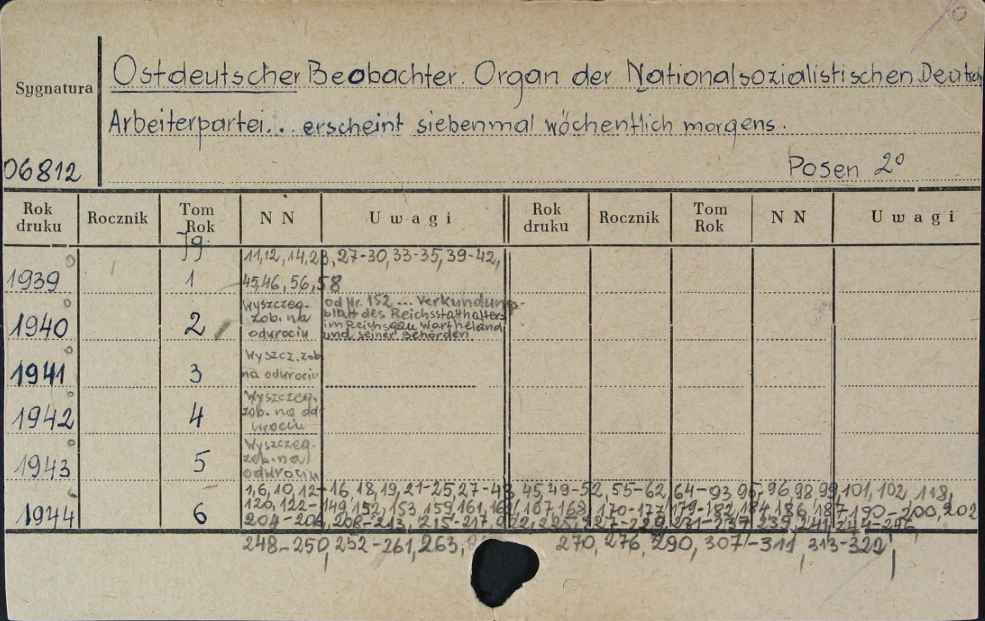 Sygnatura
06812
Ostdeutscher Beobachter. Organ der Nationalsozialistischen Deutsch
Arbeiterpartei... erscheint siebenmal wöchentlich morgens.
Posen 2°
Rok druku Rocznik Tom Rok NN Uwagi Rok druku Rocznik Tom Rok NN Uwagi
Jg.
1939 1 11,12,14,23,27-30,33-35,39-42,
45,46,56,58
1940 2 Wyszczeg. zob. na odwrociu od Nr. 152 ... Verkündungs-
blatt des Reichsstatthalters
im Reichsgau Wartheland
und seiner Behörden.
1941 3 Wyszcz. zob.
na odwrociu
1942 4 Wyszczeg.
zob. na od
wrociu
1943 5 Wyszczeg.
zob. na
odwrociu
1944 6 1,6,10,12-16,18,19,21-25,27-43, 45,49-52, 55-62, 64-93, 95, 96, 98, 99, 101, 102, 118,
120, 122- 149, 152, 153, 159, 161, 167, 168, 170-177, 179-182, 184, 186, 187, 190-200, 202
204-206, 208-213, 215-217, 227-229, 231-237, 239, 241,
248-250, 252-261, 263, 270, 276, 290, 307-311, 313-322